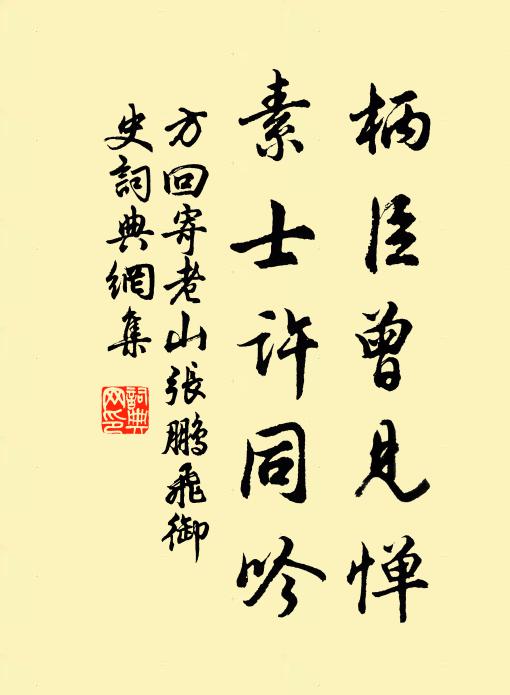 柄臣曾見惮
素士许同吟
方回寄老山張鵬飛御
史詞典網集
詞典
网印